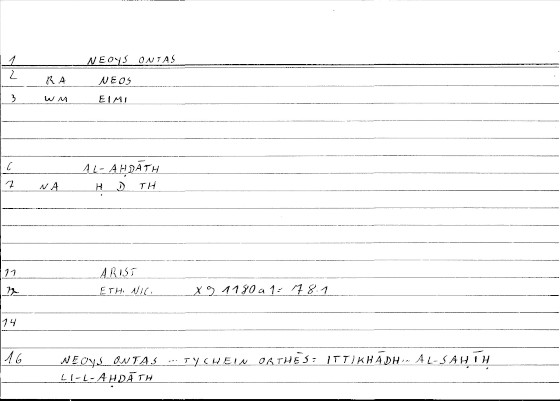 1 NEOYS ONTAS
2 RA NEOS
3 WM EIMI
6 AL-AḤDĀTH
7 NA Ḥ D TH
11 ARIST
12 ETH. NIC. X 9 1180a1 = 78.1
14
16 NEOYS ONTAS ... TYCHEIN ORTHĒS: ITTIKHĀDH... AL-SAḤĪḤ
LI-L-AḤDĀTH